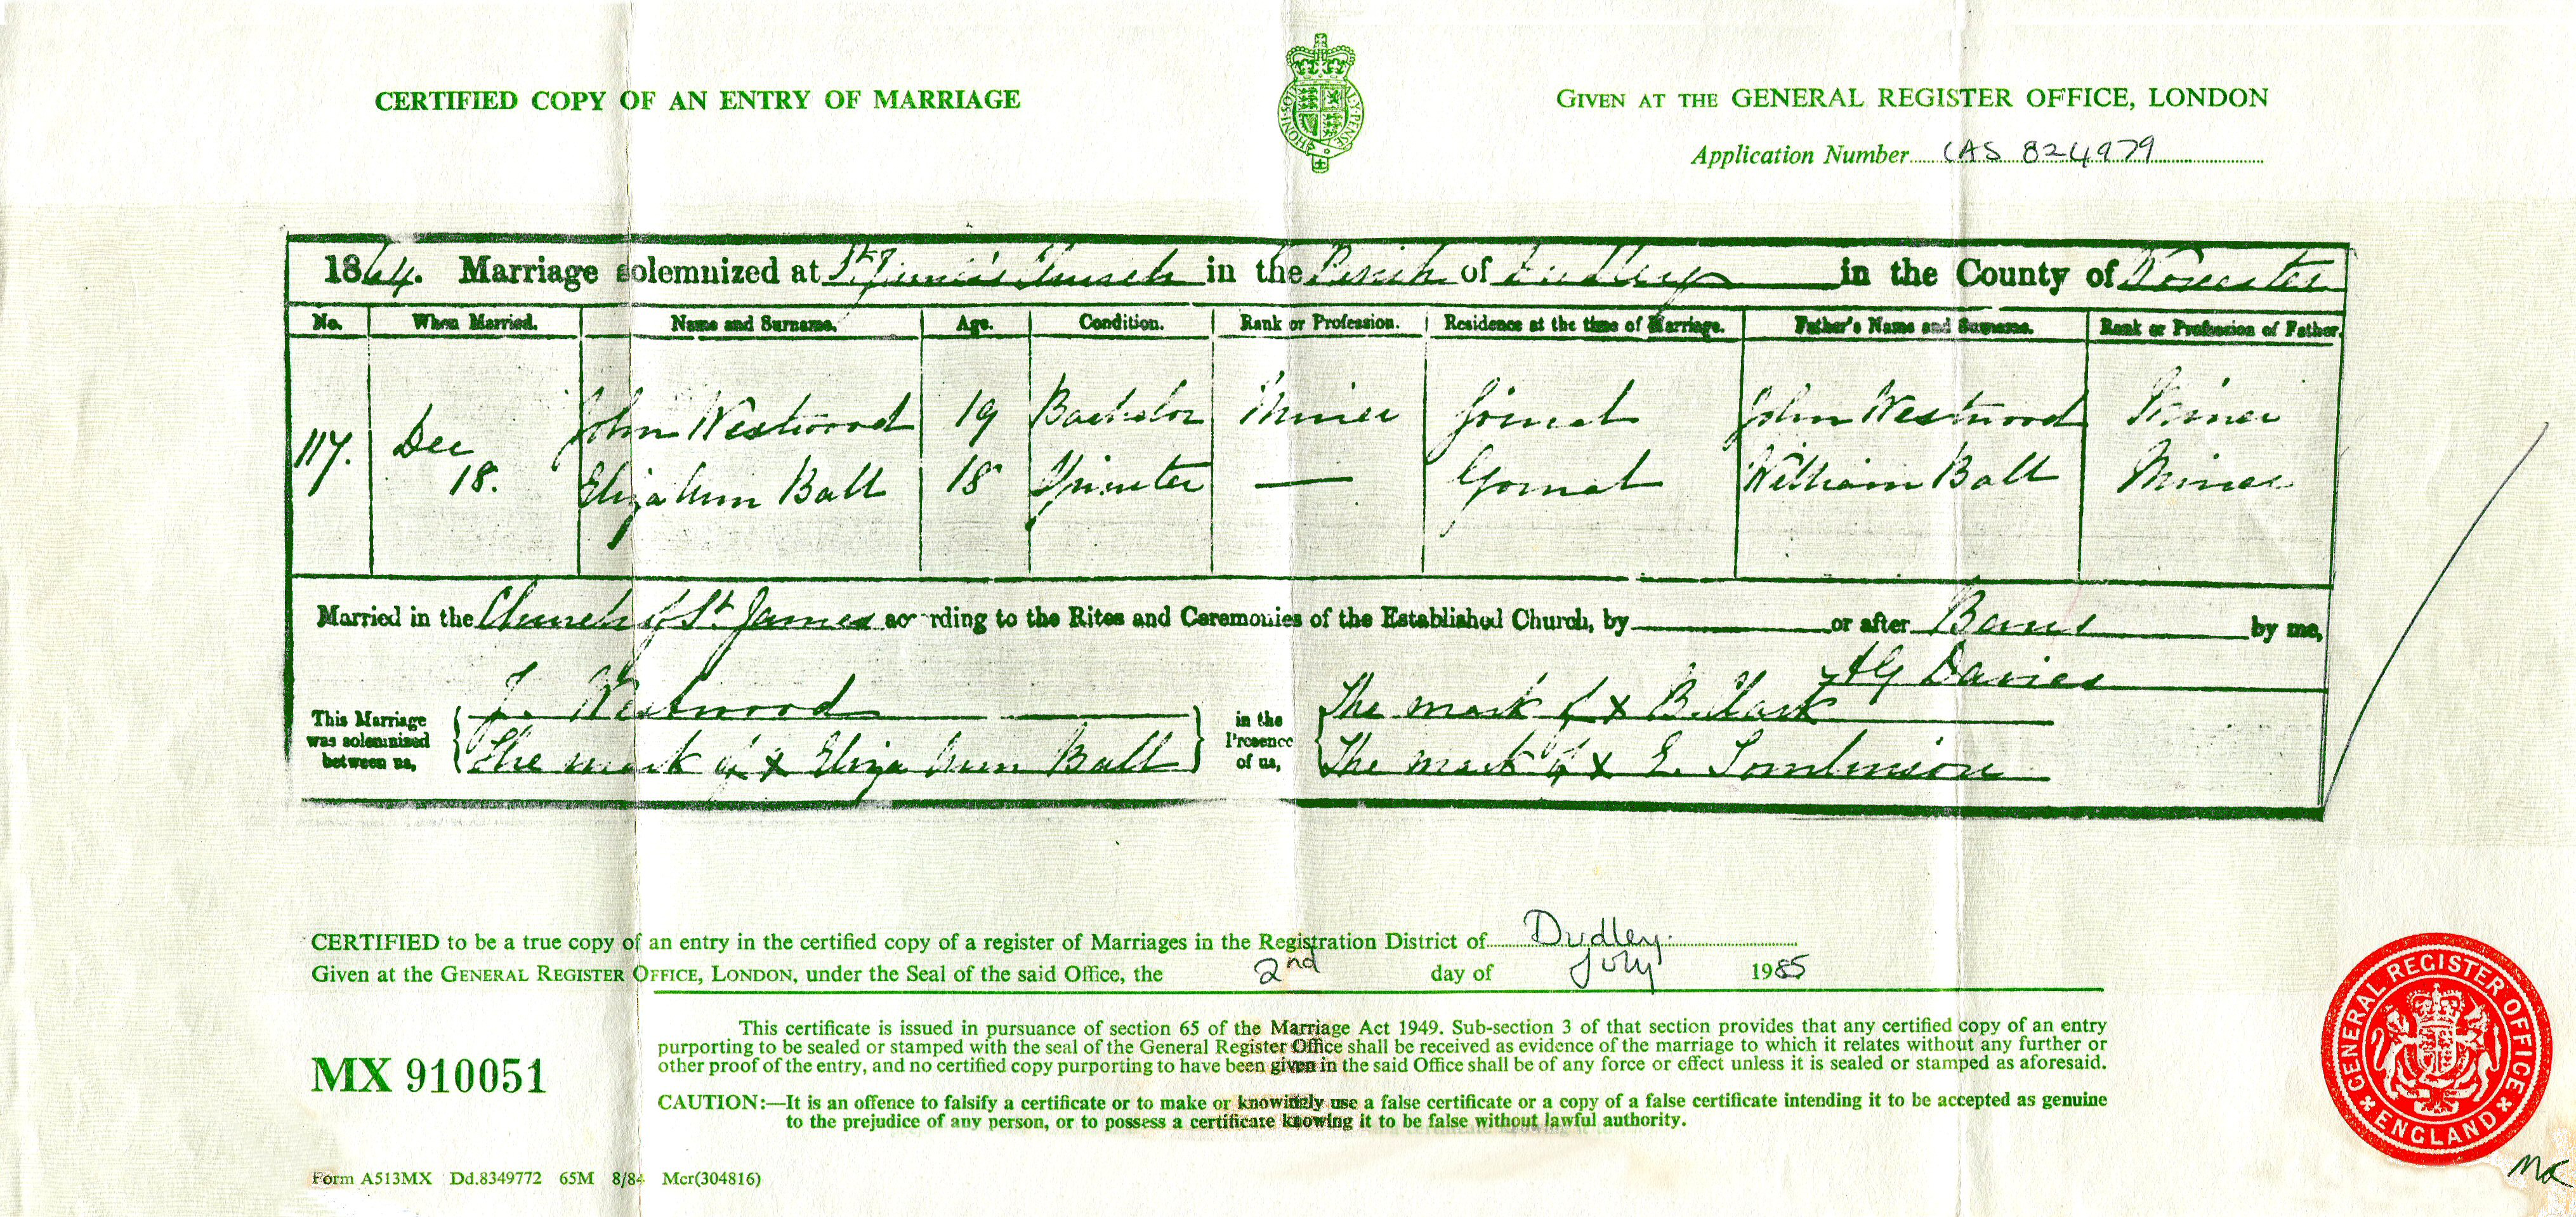 CERTIFIED COPY OF AN ENTRY OF MARRIAGE
GIVEN AT THE GENERAL REGISTER OFFICE, LONDON
Application Number CAS 824979
1864. Marriage solemnized at St James's Church in the Parish of Dudley in the County of Worcester
No. When Married. Name and Surname. Age. Condition. Rank or Profession. Residence at the time of Marriage. Father's Name and Surname. Rank or Profession of Father.
117. Dec 18. John Westwood 19 Bachelor Miner Gornal John Westwood Miner
Eliza Ann Ball 18 Spinster — Gornal William Ball Miner
Married in the Church of St. James according to the Rites and Ceremonies of the Established Church, by or after Banns by me,
Davies
This Marriage was solemnized between us,
J. Westwood
The mark of x Eliza Ann Ball
in the Presence of us,
The mark of x B. Clark
The mark of x E. Tomlinson
CERTIFIED to be a true copy of an entry in the certified copy of a register of Marriages in the Registration District of Dudley.
Given at the GENERAL REGISTER OFFICE, LONDON, under the Seal of the said Office, the 2nd day of July 1985
MX 910051
This certificate is issued in pursuance of section 65 of the Marriage Act 1949. Sub-section 3 of that section provides that any certified copy of an entry
purporting to be sealed or stamped with the seal of the General Register Office shall be received as evidence of the marriage to which it relates without any further or
other proof of the entry, and no certified copy purporting to have been given in the said Office shall be of any force or effect unless it is sealed or stamped as aforesaid.
CAUTION:—It is an offence to falsify a certificate or to make or knowingly use a false certificate or a copy of a false certificate intending it to be accepted as genuine
to the prejudice of any person, or to possess a certificate knowing it to be false without lawful authority.
GENERAL REGISTER OFFICE
ENGLAND
Form A513MX Dd.8349772 65M 8/84 Mcr(304816)